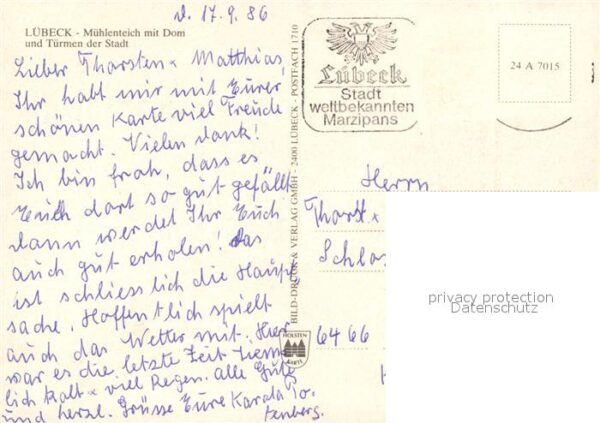 d. 17.9.86
LÜBECK - Mühlenteich mit Dom
und Türmen der Stadt
Lieber Thorsten x Matthias!
Ihr habt mir mit Eurer
schönen Karte viel Freude
gemacht. Vielen Dank!
Ich bin froh, dass es
Euch dort so gut gefällt
dann werdet Ihr Euch
auch gut erholen! Das
ist schliesslich die Haupt
sache. Hoffentlich spielt
auch das Wetter mit. Hier
war es die letzte Zeit ziem
lich kalt x viel Regen. Alle Gute
und herzl. Grüsse Eure
tenberg.
BILD-DRUCK & VERLAG GMBH · 2400 LÜBECK · POSTFACH 1710
HOLSTEN
KARTE
Lübeck
Stadt
weltbekannten
Marzipans
24 A 7015
Herrn
Thorst x
Schlo
6466
privacy protection
Datenschutz